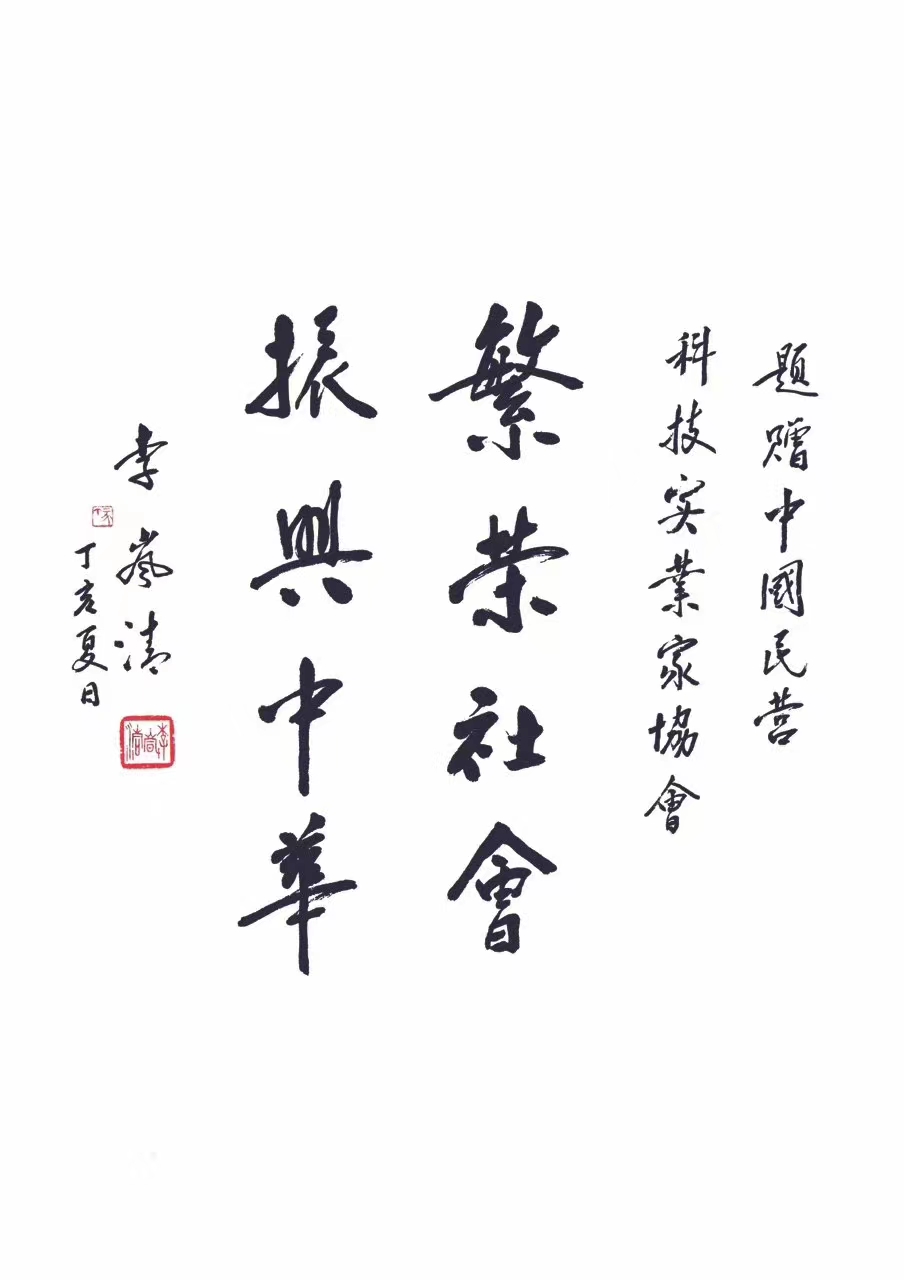 題贈中國民营
科技实業家協會
繁荣社會
振興中華
李嵐清
丁亥夏日
李嵐清